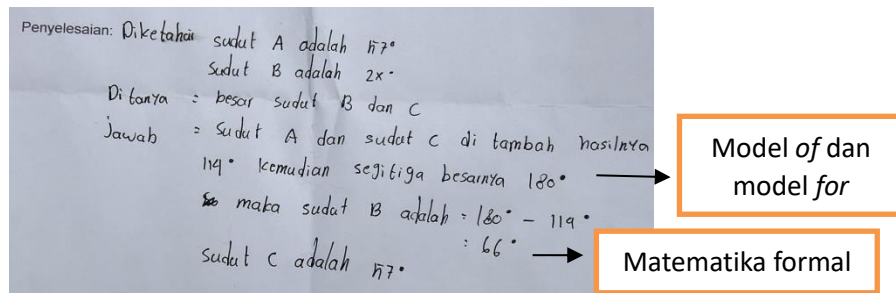 Penyelesaian: Diketahui sudut A adalah 57°
Sudut B adalah 2x°
Ditanya : besar sudut B dan C
Jawab : Sudut A dan sudut C di tambah hasilnya
114° kemudian segitiga besarnya 180°
maka sudut B adalah : 180° - 114°
: 66°
Sudut C adalah 57°
Model of dan
model for
Matematika formal